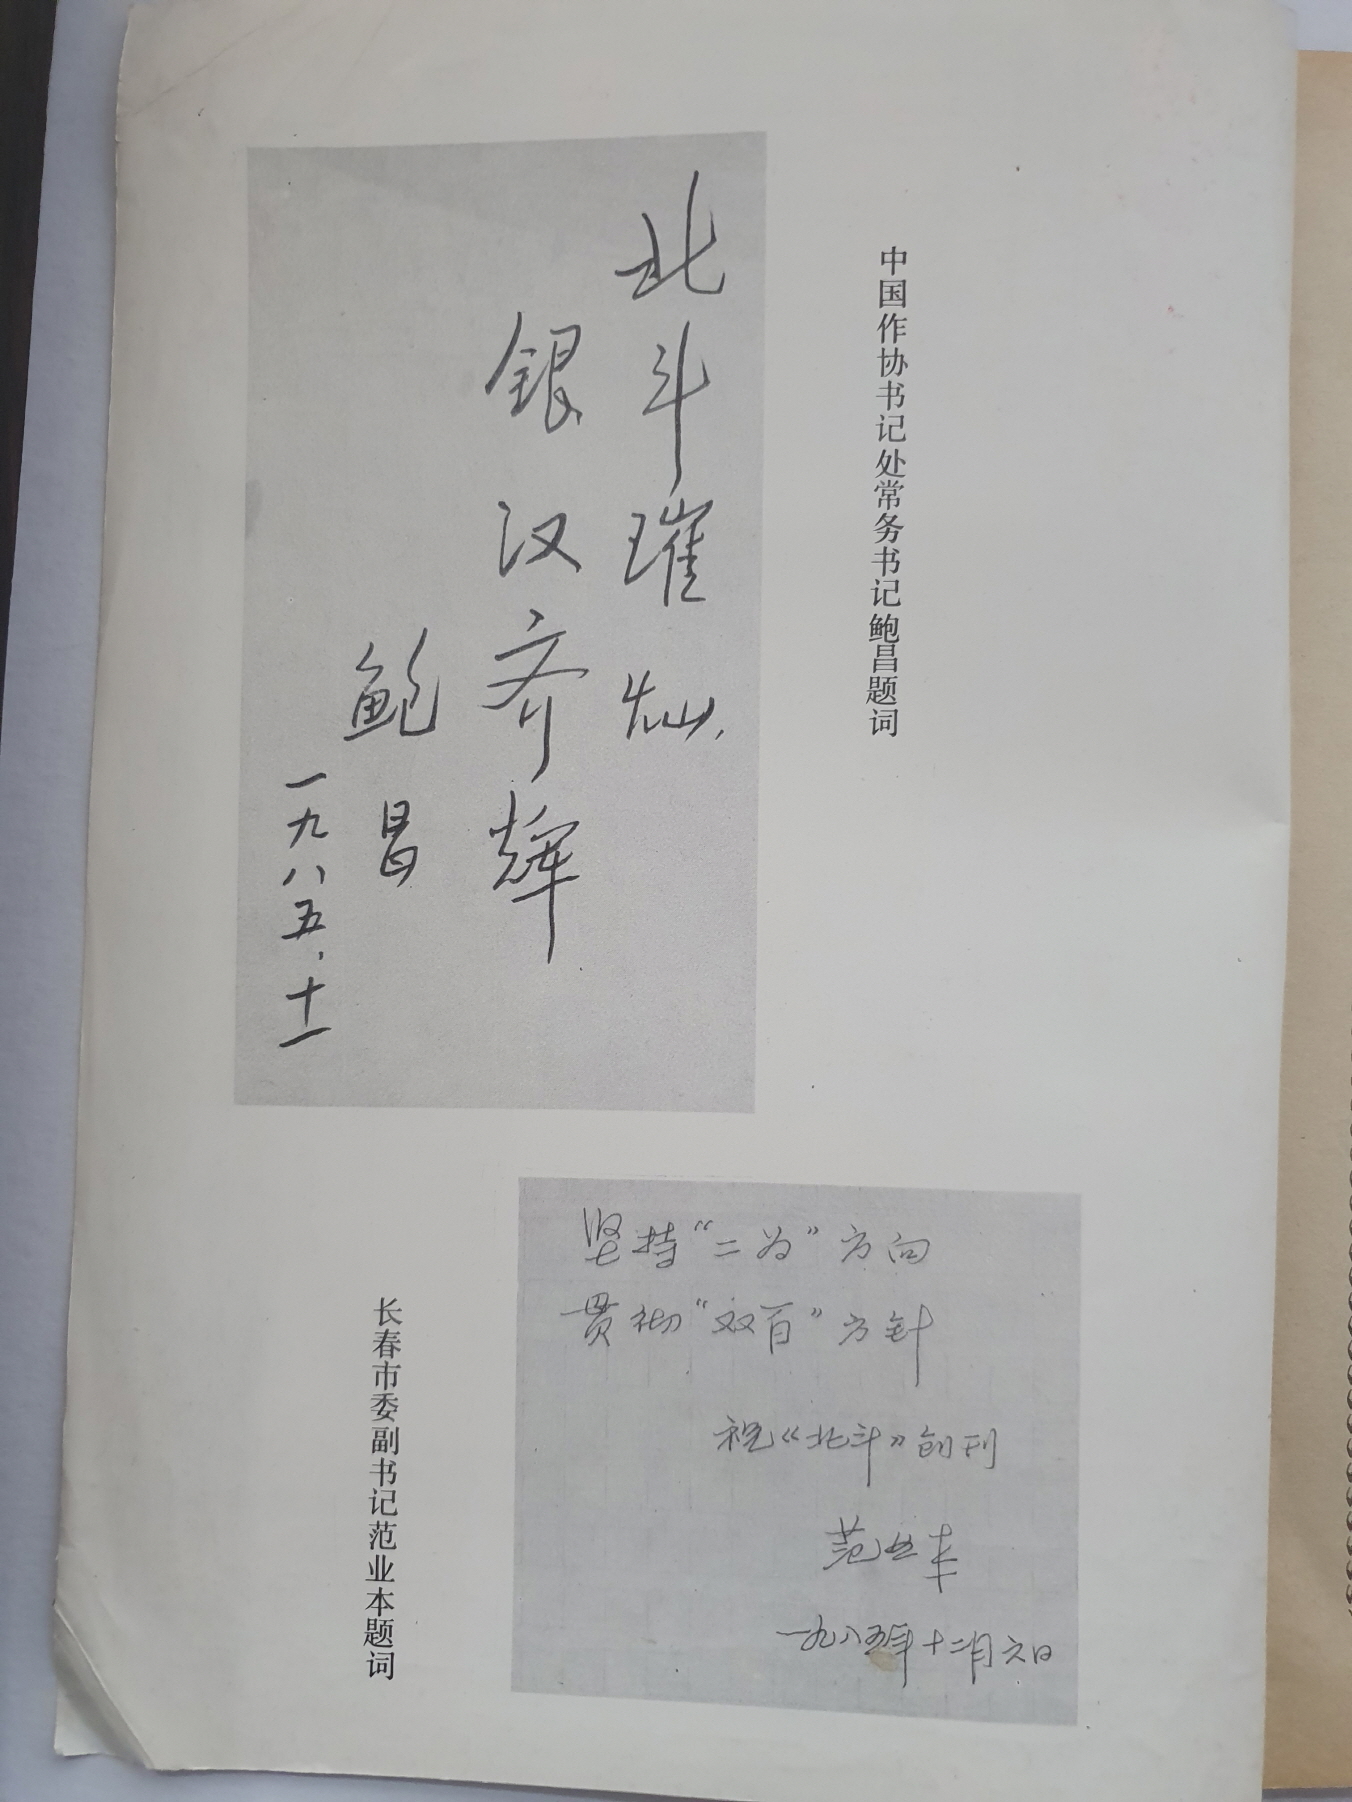 中国作协书记处常务书记鲍昌题词
北斗璀灿，
银汉齐辉
鲍昌
一九八五.十一
坚持“二为”方向
贯彻“双百”方针
祝《北斗》创刊
范业本
一九八五年十二月六日
长春市委副书记范业本题词